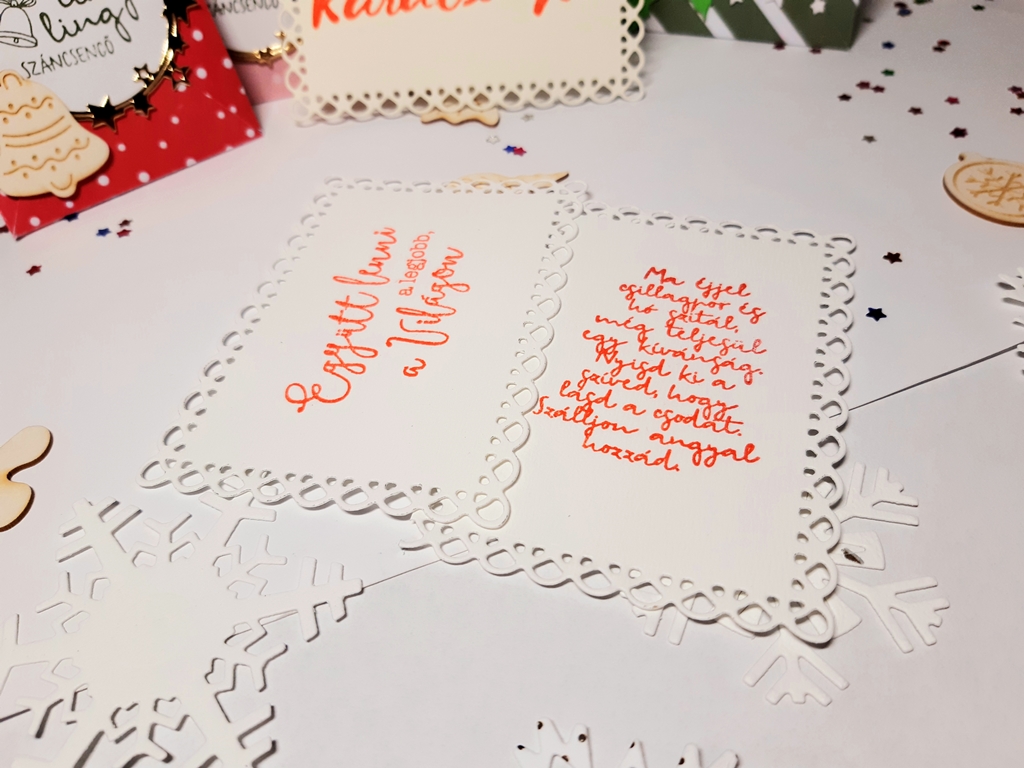 ling
SZÁNCSENGŐ
SZÁNCSENGŐ
Együtt lenni
a legjobb,
a Világon
Ma éjjel
csillagpor és
hó szitál,
még teljesül
egy kívánság.
Nyisd ki a
szíved, hogy
lásd a csodát.
Szálljon angyal
hozzád.